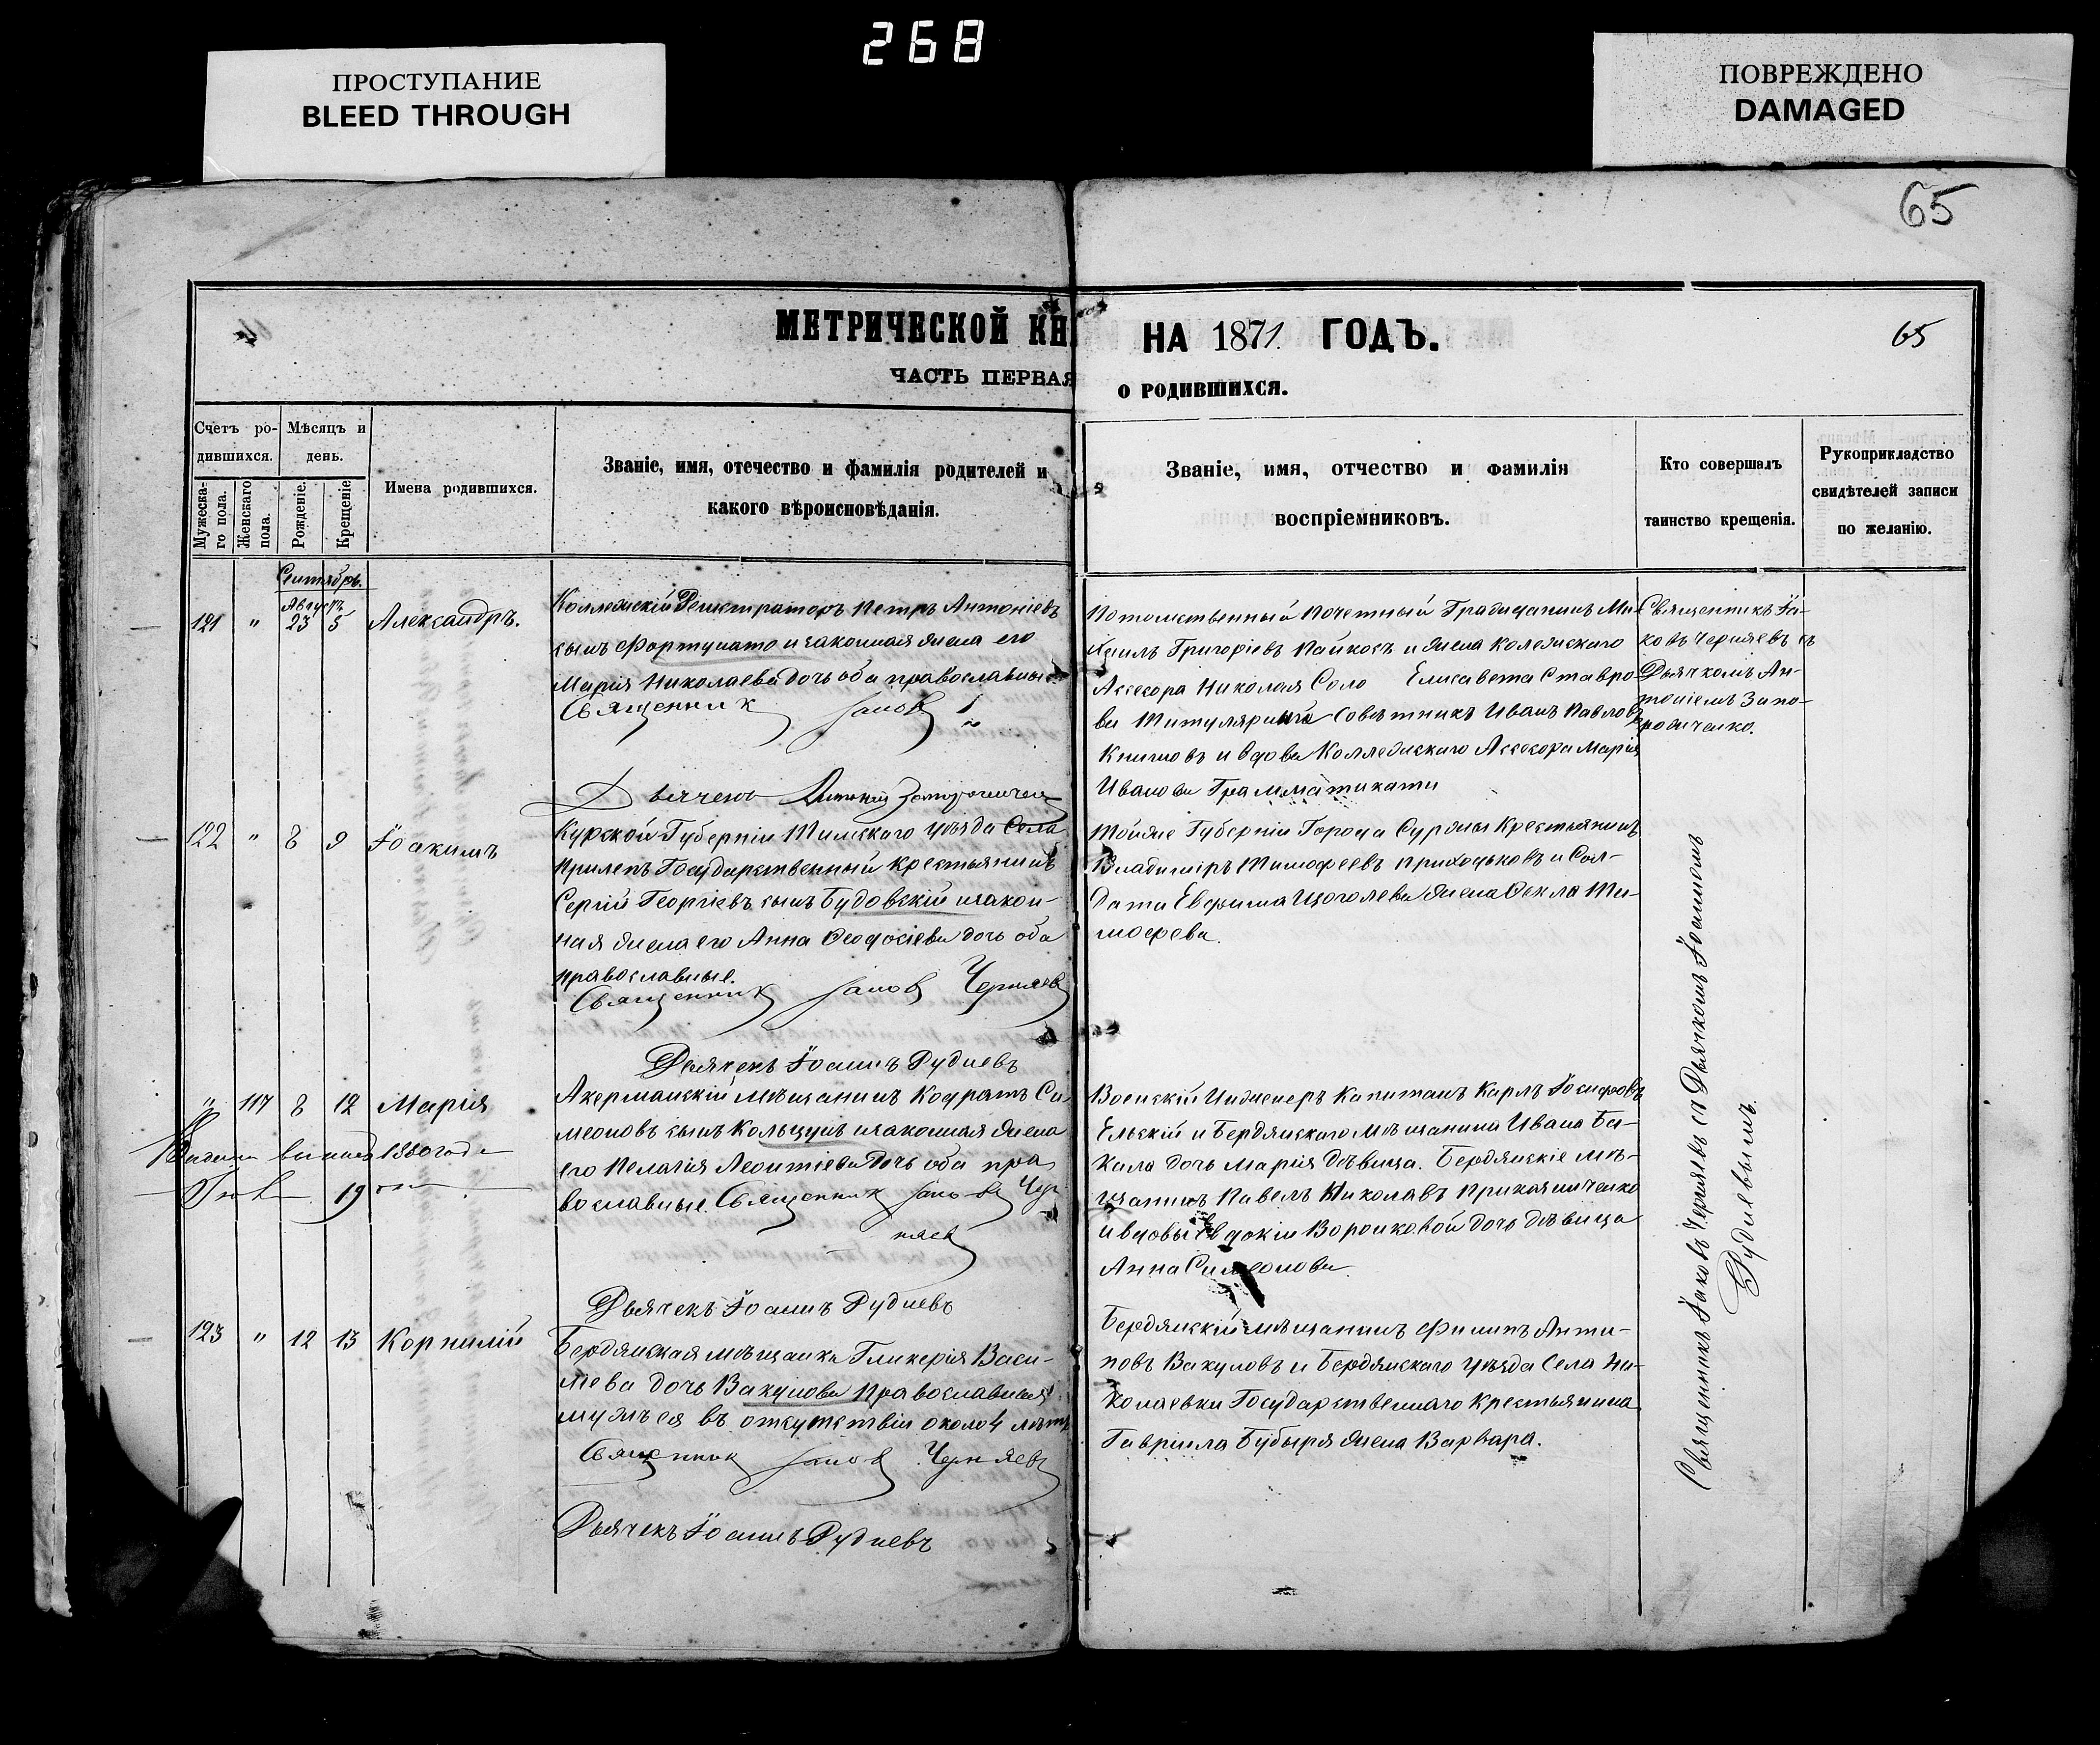 268
ПРОСТУПАНИЕ
BLEED THROUGH
ПОВРЕЖДЕНО
DAMAGED
65
МЕТРИЧЕСКОЙ КН
НА 1871 ГОДЪ.
65
ЧАСТЬ ПЕРВАЯ
О РОДИВШИХСЯ.
Счетъ ро-
дившихся.
Мѣсяцъ и
день.
Мужеска-
го пола.
Женскаго
пола.
Рожденіе.
Крещеніе
Имена родившихся.
Званіе, имя, отечество и фамилія родителей и
какого вѣроисповѣданія.
Званіе, имя, отчество и фамилія
воспріемниковъ.
Кто совершалъ
таинство крещенія.
Рукоприкладство
свидѣтелей записи
по желанію.
Сентябрь.
Августъ
121 " 23 5 Александръ.
Коллежскій Регистраторъ Петръ Антоніевъ
сынъ Фортунато и законная жена его
Марія Николаева дочь оба православные
Священник Іаков
Дьячекъ Антоній
Потомственный Почетный Гражданинъ Ми-
хаилъ Григоріевъ Пайкосъ и жена Колежскаго
Ассесора Николая Соло Елисавета Ставро-
ва Титулярный Совѣтникъ Иванъ Павловъ
Книшовъ и вдова Коллежскаго Ассесора Марія
Иванова Грамматикати
Священникъ Іа-
ковъ Черняевъ съ
Дьячкомъ Ан-
тоніемъ Запо-
рожченко.
122 " 8 9 Іоакимъ
Курской Губерніи Тимскаго уѣзда Села
Прилепъ Государственный крестьянинъ
Сергій Георгіевъ сынъ Будовскій и закон-
ная жена его Анна Ѳеодосіева дочь оба
православные.
Священник Іаков Черняев
Дьячекъ Іоаннъ Рудневъ
Тойже Губерніи Города Суджи Крестьянинъ
Владиміръ Тимофеевъ Приходьковъ и Сол-
дата Евфима Щоголева жена Ѳекла Ти-
мофева.
" 117 8 12 Марія
1880 года
19
Акерманскій Мѣщанинъ Кодратъ Си-
меоновъ сынъ Кольцунъ и законная жена
его Пелагія Леонтіева дочь оба пра-
вославные. Священник Іаков Чер
няев
Дьячекъ Іоаннъ Рудневъ
Военскій Инженеръ Капитанъ Карлъ Іосифовъ
Ельскій и Бердянскаго Мѣщанина Ивана Ба-
кала дочь Марія дѣвица. Бердянскіе мѣ-
щанинъ Павелъ Николавъ Приказниченко
и вдовы Евдокіи Воронковой дочь дѣвица
Анна Симеонова.
123 " 12 13 Корнилій
Бердянская мѣщанка Гликерія Васи-
лева дочь Вакулова православная
мужъ ея въ отсутствіи около 4 лѣтъ
Священник Іаков Черняевъ
Дьячекъ Іоаннъ Рудневъ
Бердянскій мѣщанинъ Филипъ Анти-
повъ Вакуловъ и Бердянскаго уѣзда Села Ни-
колаевки Государственнаго Крестьянина
Гавріила Бубыря жена Варвара.
Священникъ Іаковъ Черняевъ съ Дьячкомъ Іоанномъ
Рудневымъ.